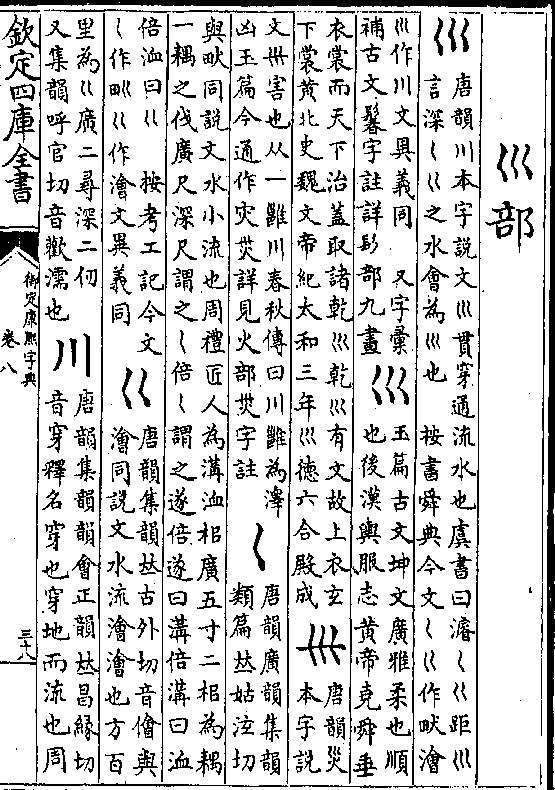 巛部
巛
唐韻川本字說文巛貫穿通流水也虞書曰濬𡿨巜距巛
言深𡿨巜之水會為巛也 按書舜典今文𡿨巜作畎澮
巛作川文異義同 又字彙
補古文鬊字註詳髟部九畫
巛
玉篇古文坤文廣雅柔也順
也後漢輿服志黃帝堯舜垂
衣裳而天下治蓋取諸乾巛乾巛有文故上衣玄
下裳黃北史魏文帝紀太和三年巛德六合殿成
𡿧
唐韻災
本字說
文𡿧害也从一雝川春秋傳曰川雝為澤
凶玉篇今通作灾烖詳見火部烖字註
𡿨
唐韻廣韻集韻
類篇𠀤姑泫切
與畎同說文水小流也周禮匠人為溝洫耜廣五寸二耜為耦
一耦之伐廣尺深尺謂之𡿨倍𡿨謂之遂倍遂曰溝倍溝曰洫
倍洫曰巜 按考工記今文
𡿨作𤰕巜作澮文異義同
巜
唐韻集韻𠀤古外切音儈與
澮同說文水流澮澮也方百
里為巜廣二尋深二仞
又集韻呼官切音歡濡也
川
唐韻集韻韻會正韻𠀤昌緣切
音穿釋名穿也穿地而流也周
欽定四庫全書
御定康熙字典
卷八
三十八